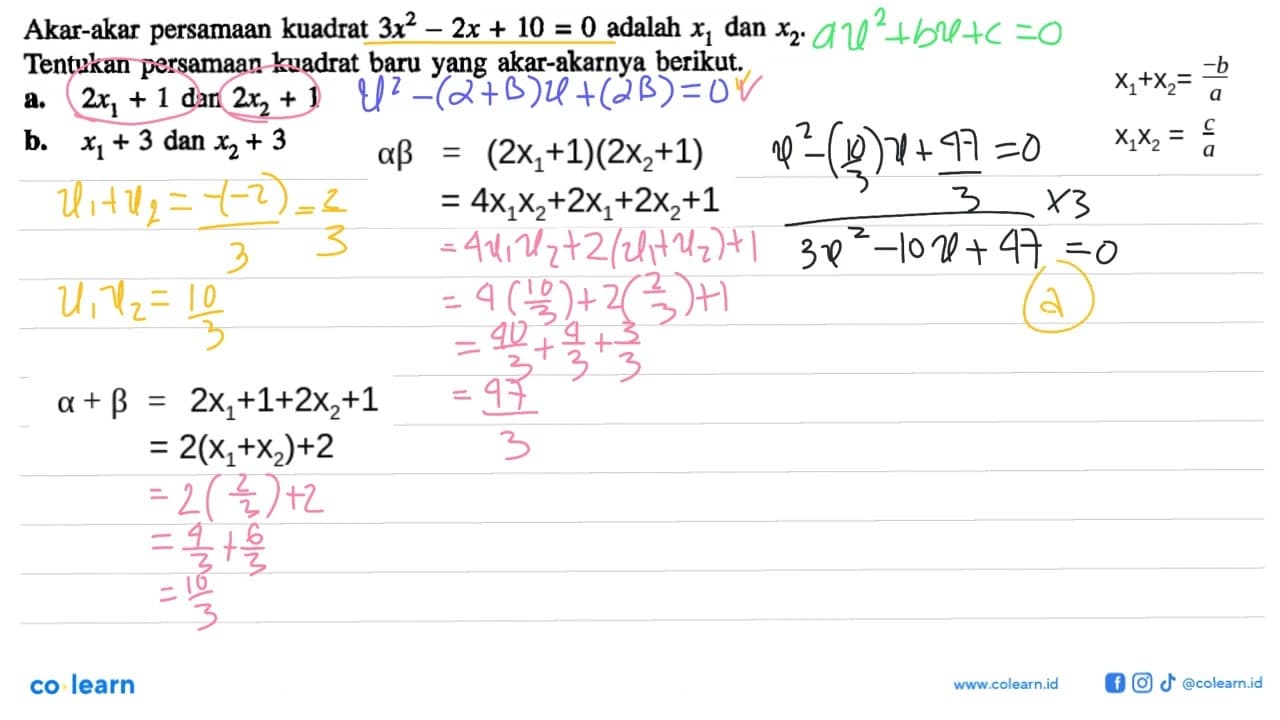 Akar-akar persamaan kuadrat 3x² – 2x + 10 = 0 adalah x₁ dan x₂. ax²+bx+c=0
Tentukan persamaan kuadrat baru yang akar-akarnya berikut.
a. 2x₁ + 1 dan 2x₂ + 1
x²-(α+β)x+(αβ)=0
b. x₁ + 3 dan x₂ + 3
x₁+x₂= -b/a
x₁x₂ = c/a
x₁+x₂ = -(-2)/3 = 2/3
x₁x₂ = 10/3
α + β = 2x₁+1+2x₂+1
= 2(x₁+x₂)+2
= 2(2/3)+2
= 4/3+6/3
= 10/3
αβ = (2x₁+1)(2x₂+1)
= 4x₁x₂+2x₁+2x₂+1
= 4x₁x₂+2(x₁+x₂)+1
= 4(10/3)+2(2/3)+1
= 40/3+4/3+3/3
= 47/3
x²-(10/3)x+47/3=0
×3
3x²-10x+47=0
a
co learn
www.colearn.id
@colearn.id